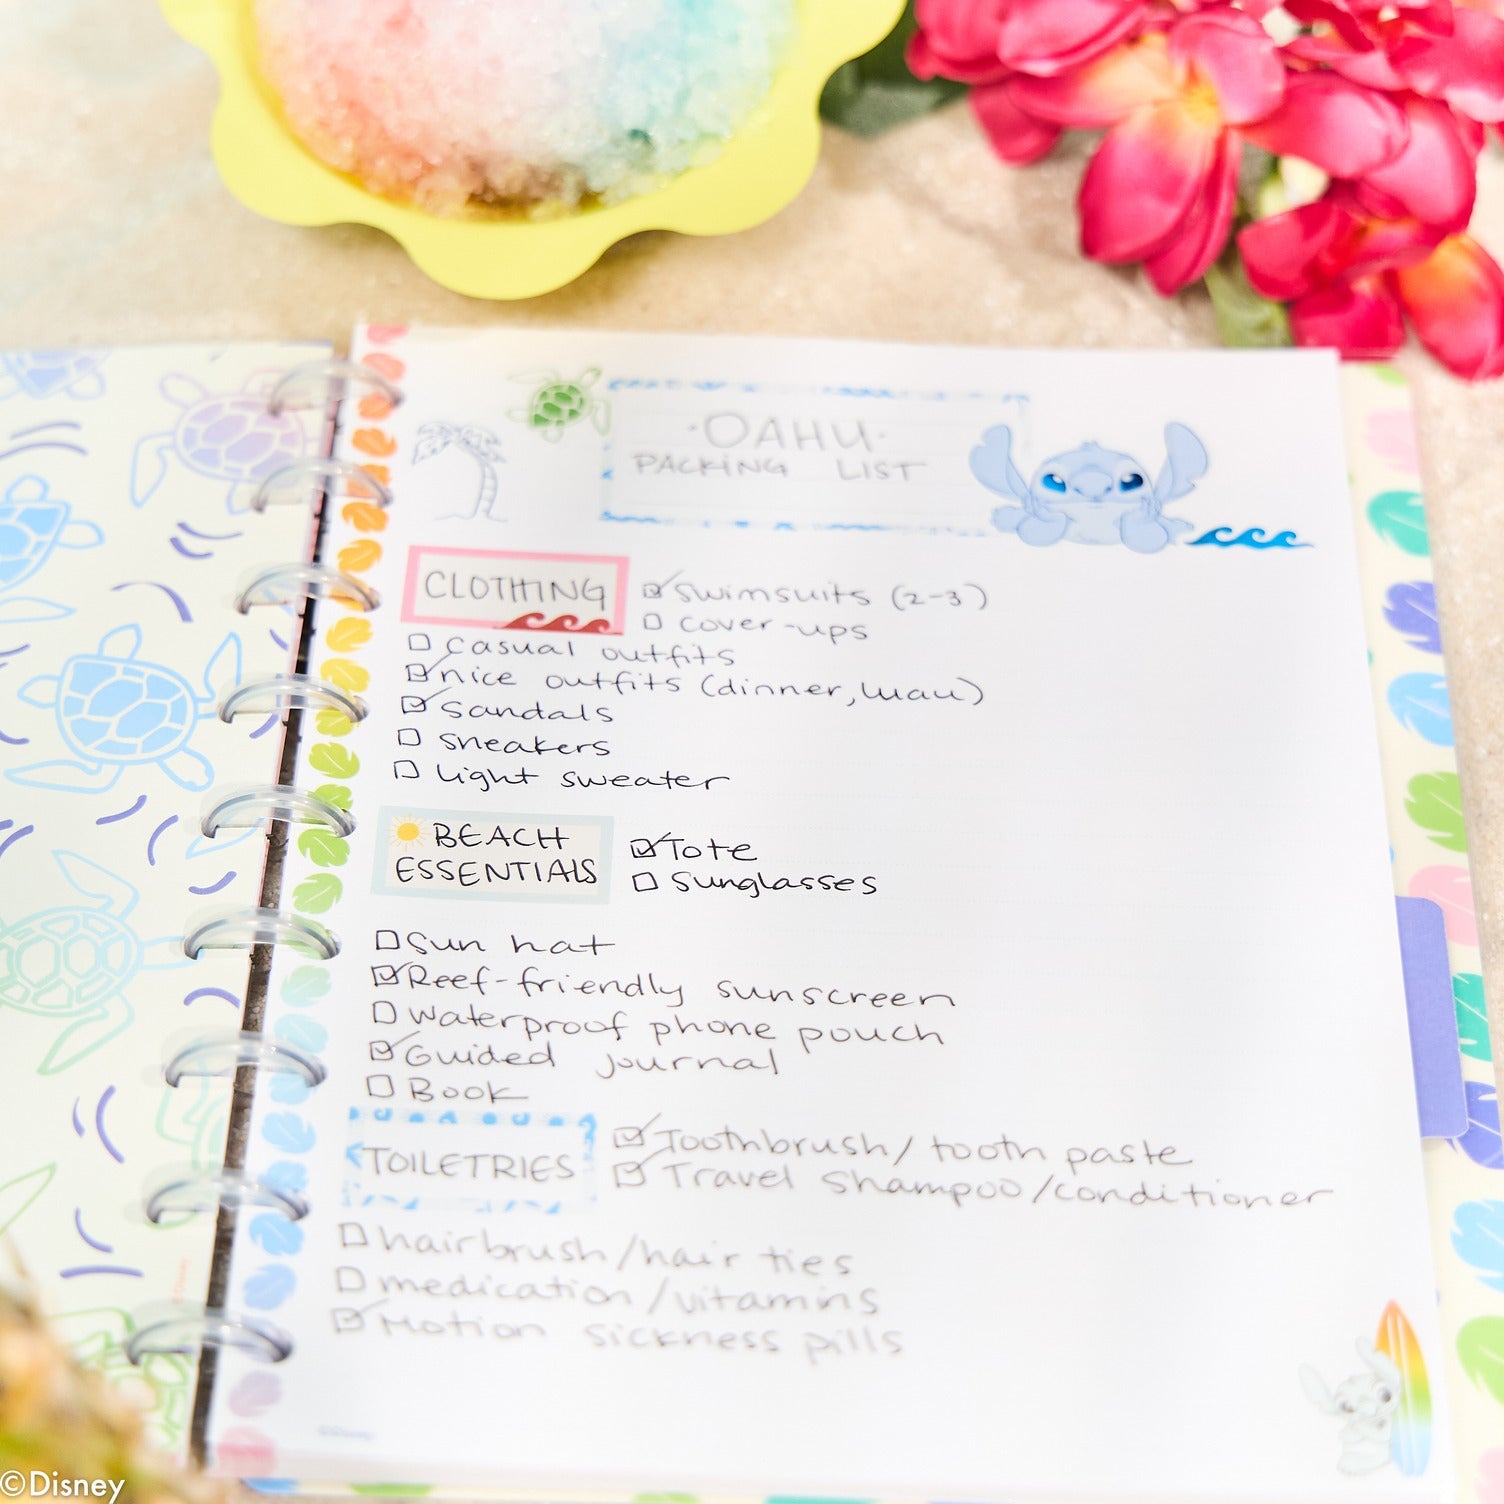 ·OAHU·
PACKING LIST
CLOTHING
☑ swimsuits (2-3)
☐ cover-ups
☐ casual outfits
☑ nice outfits (dinner, luau)
☑ sandals
☐ sneakers
☐ light sweater
BEACH
ESSENTIALS
☑ Tote
☐ sunglasses
☐ sun hat
☑ Reef-friendly sunscreen
☐ waterproof phone pouch
☑ Guided journal
☐ Book
TOILETRIES
☑ Toothbrush/ tooth paste
☑ Travel shampoo/conditioner
☐ hairbrush/hair ties
☐ medication/vitamins
☑ Motion sickness pills
©Disney
©Disney